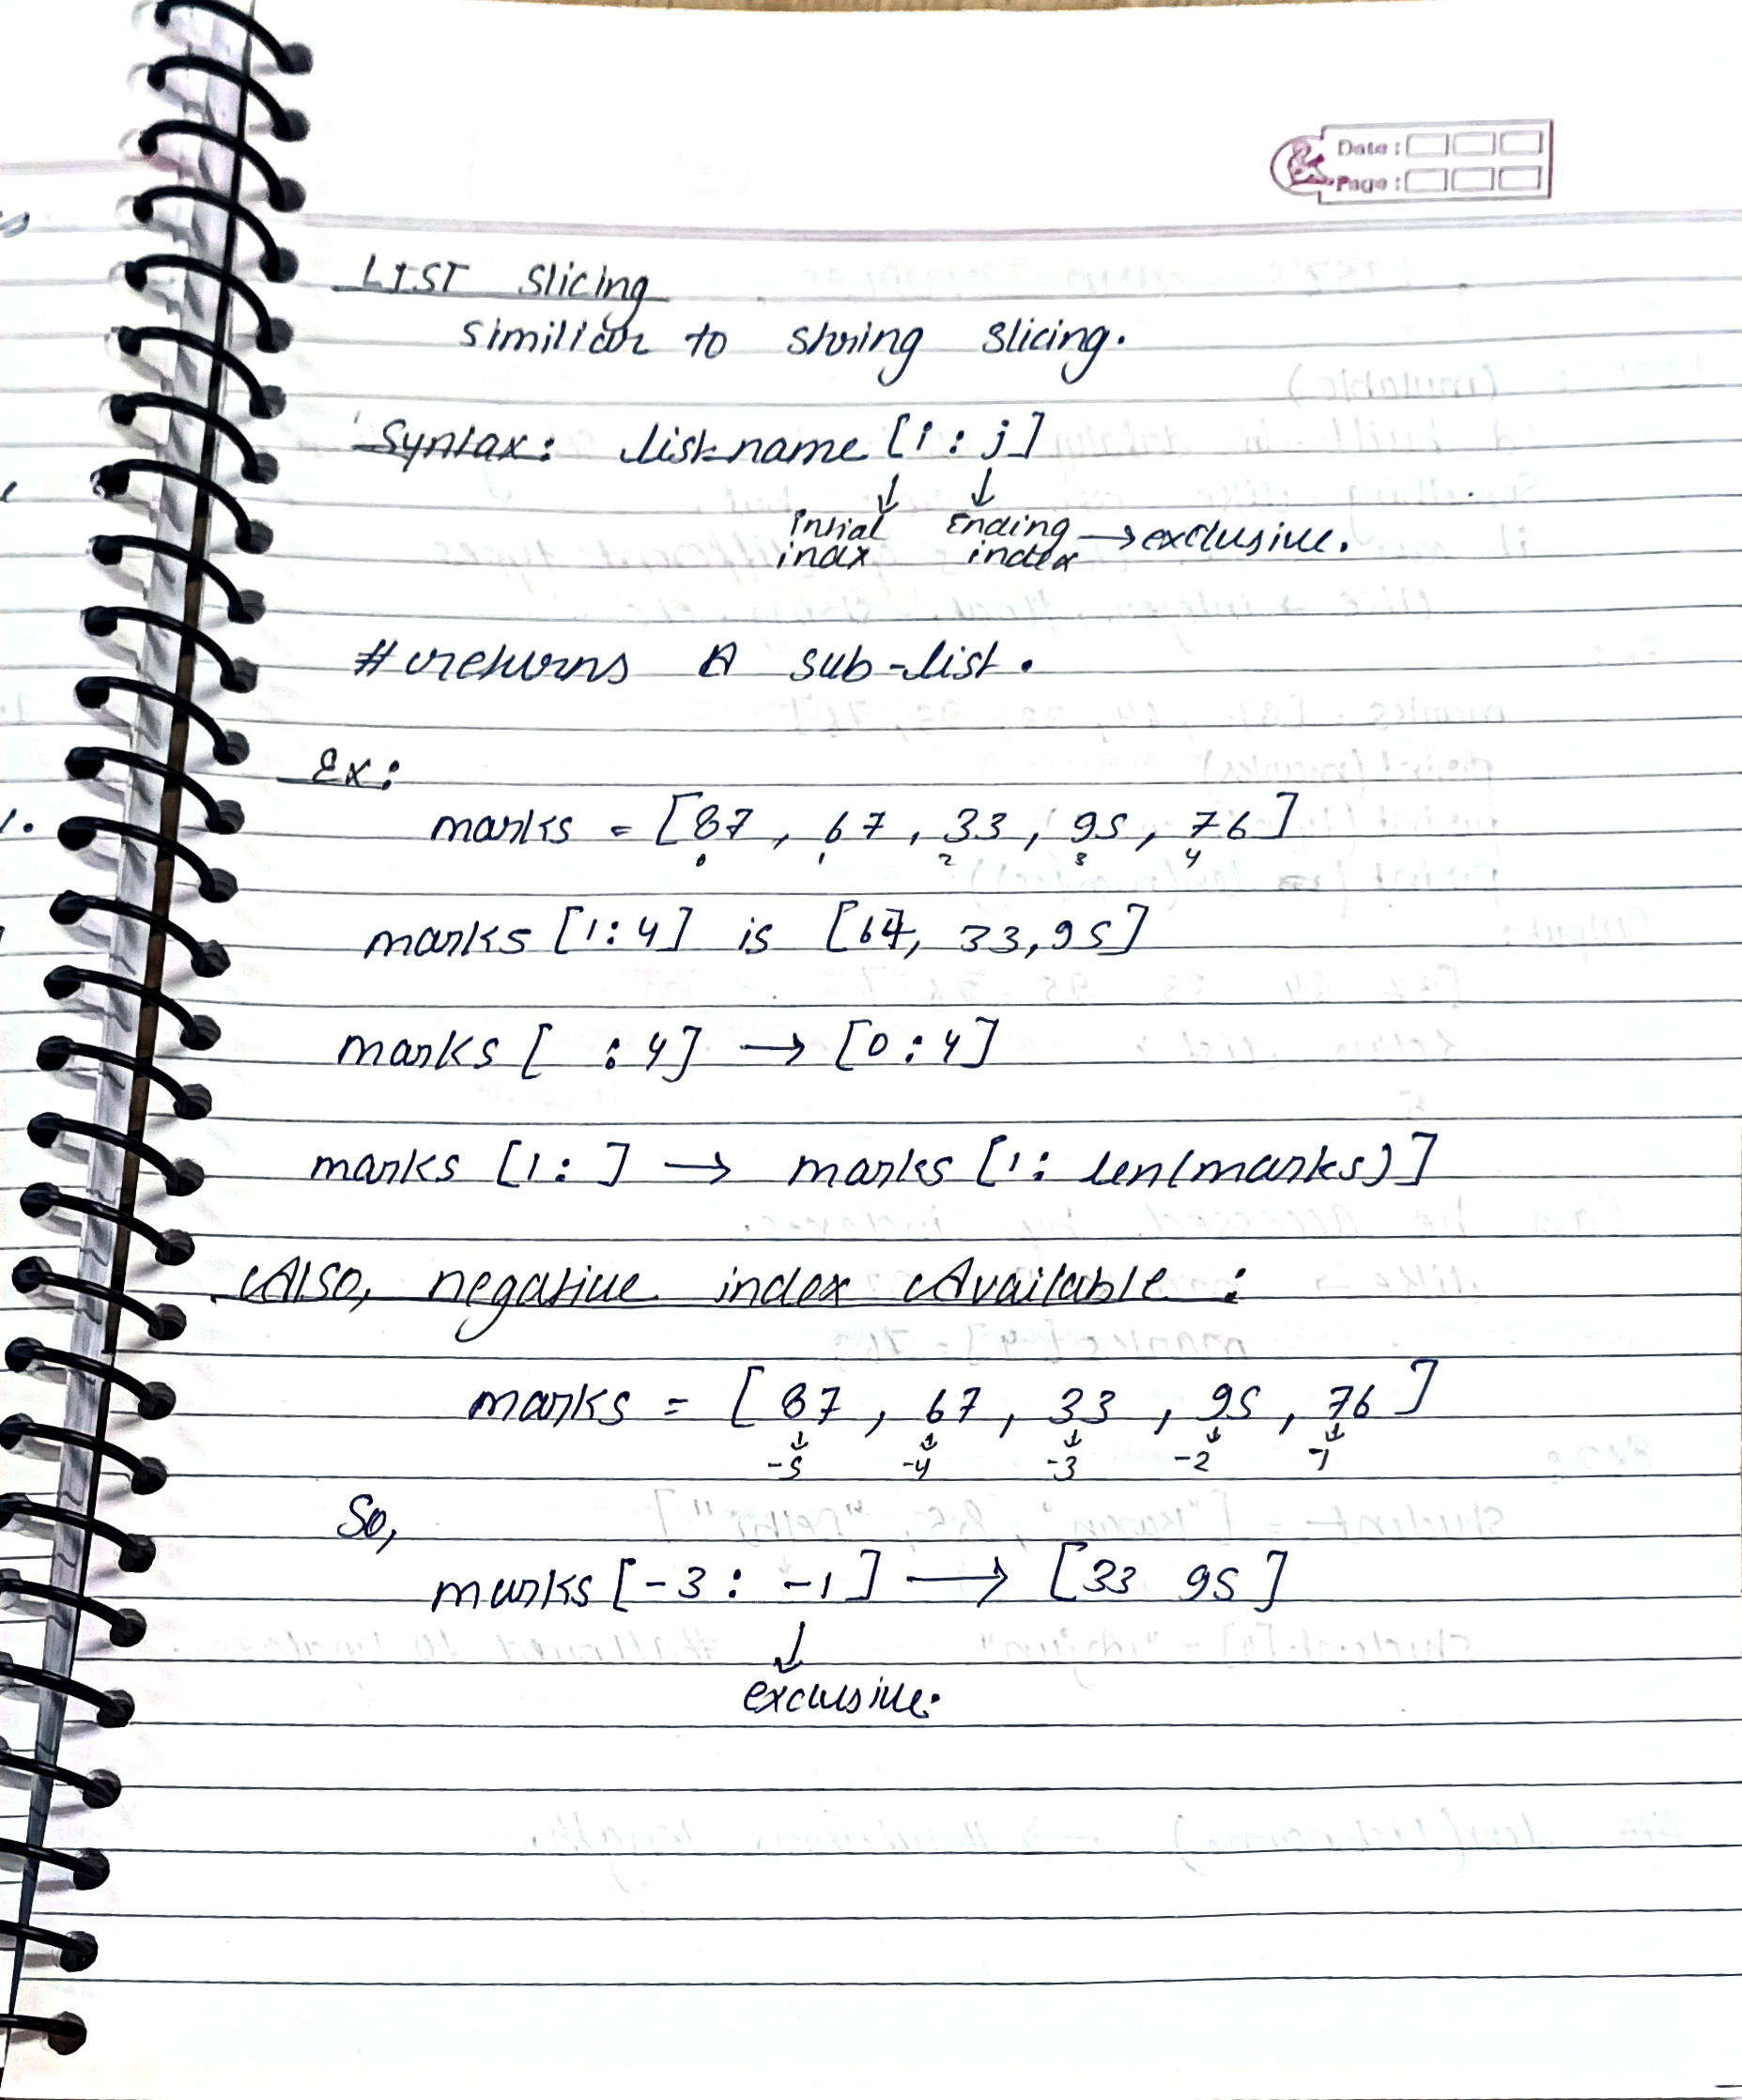 Date :
Page :
LIST Slicing
Similiar to string slicing.
Syntax: listname [i : j]
↓ ↓
Initial Ending → exclusive.
index index
# returns A sub-list.
Ex:
marks = [87, 67, 33, 95, 76]
0 1 2 3 4
marks [1:4] is [67, 33, 95]
marks [ :4] → [0:4]
marks [1: ] → marks [1: len(marks)]
Also, negative index Available :
marks = [ 87, 67, 33, 95, 76 ]
↓ ↓ ↓ ↓ ↓
-5 -4 -3 -2 -1
So,
marks [-3 : -1] → [33 95]
↓
exclusive.